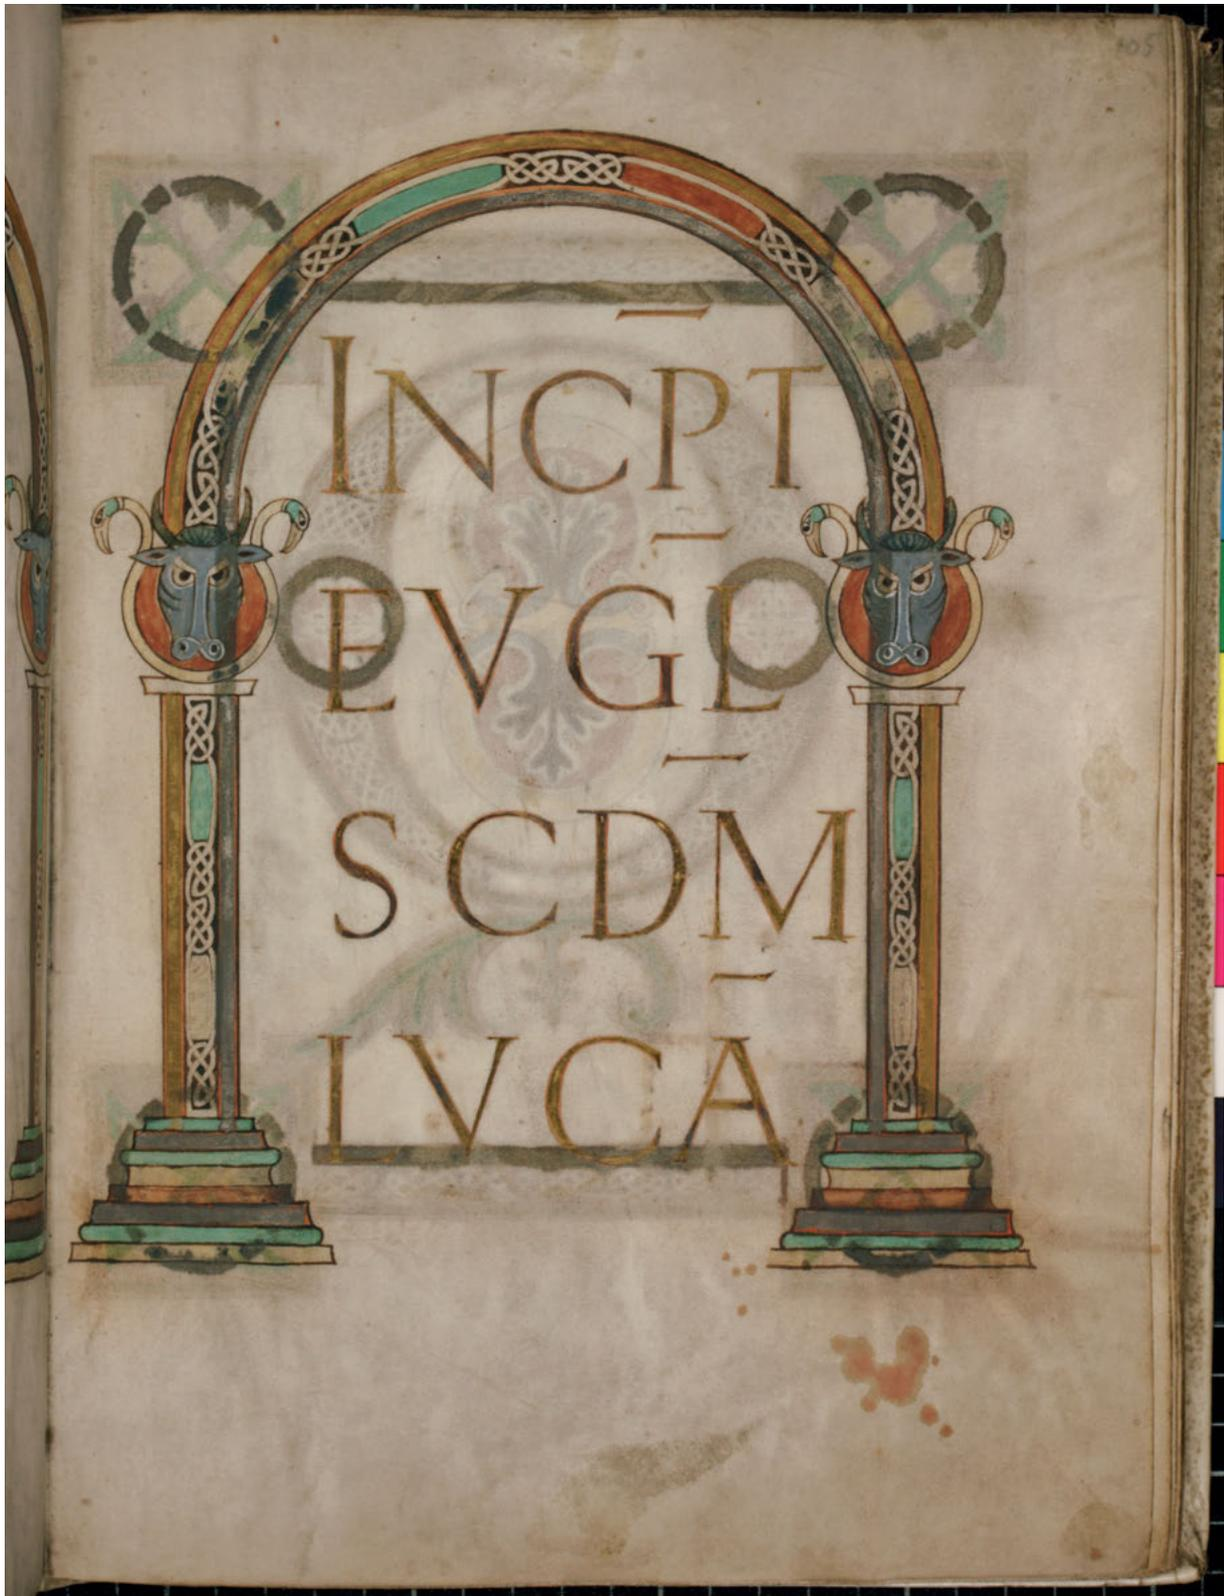 105
INCP̅T
EVG̅L
SCD̅M
LVCA̅